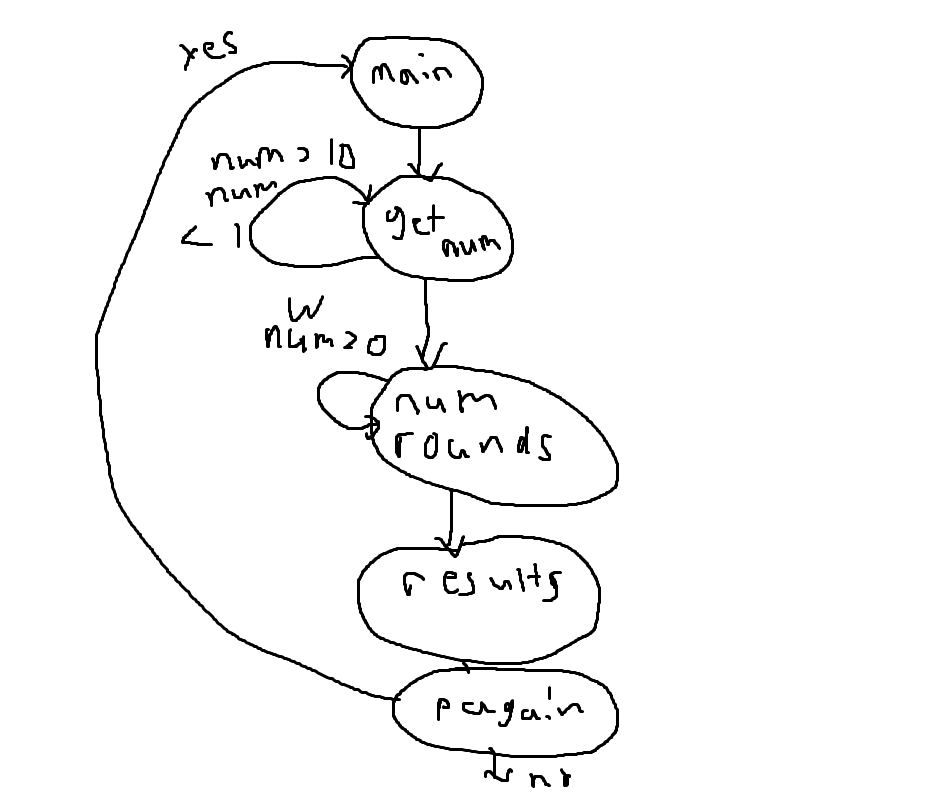 yes
main
num > 10
num
< 1
get
num
W
num > 0
num
rounds
results
pagain